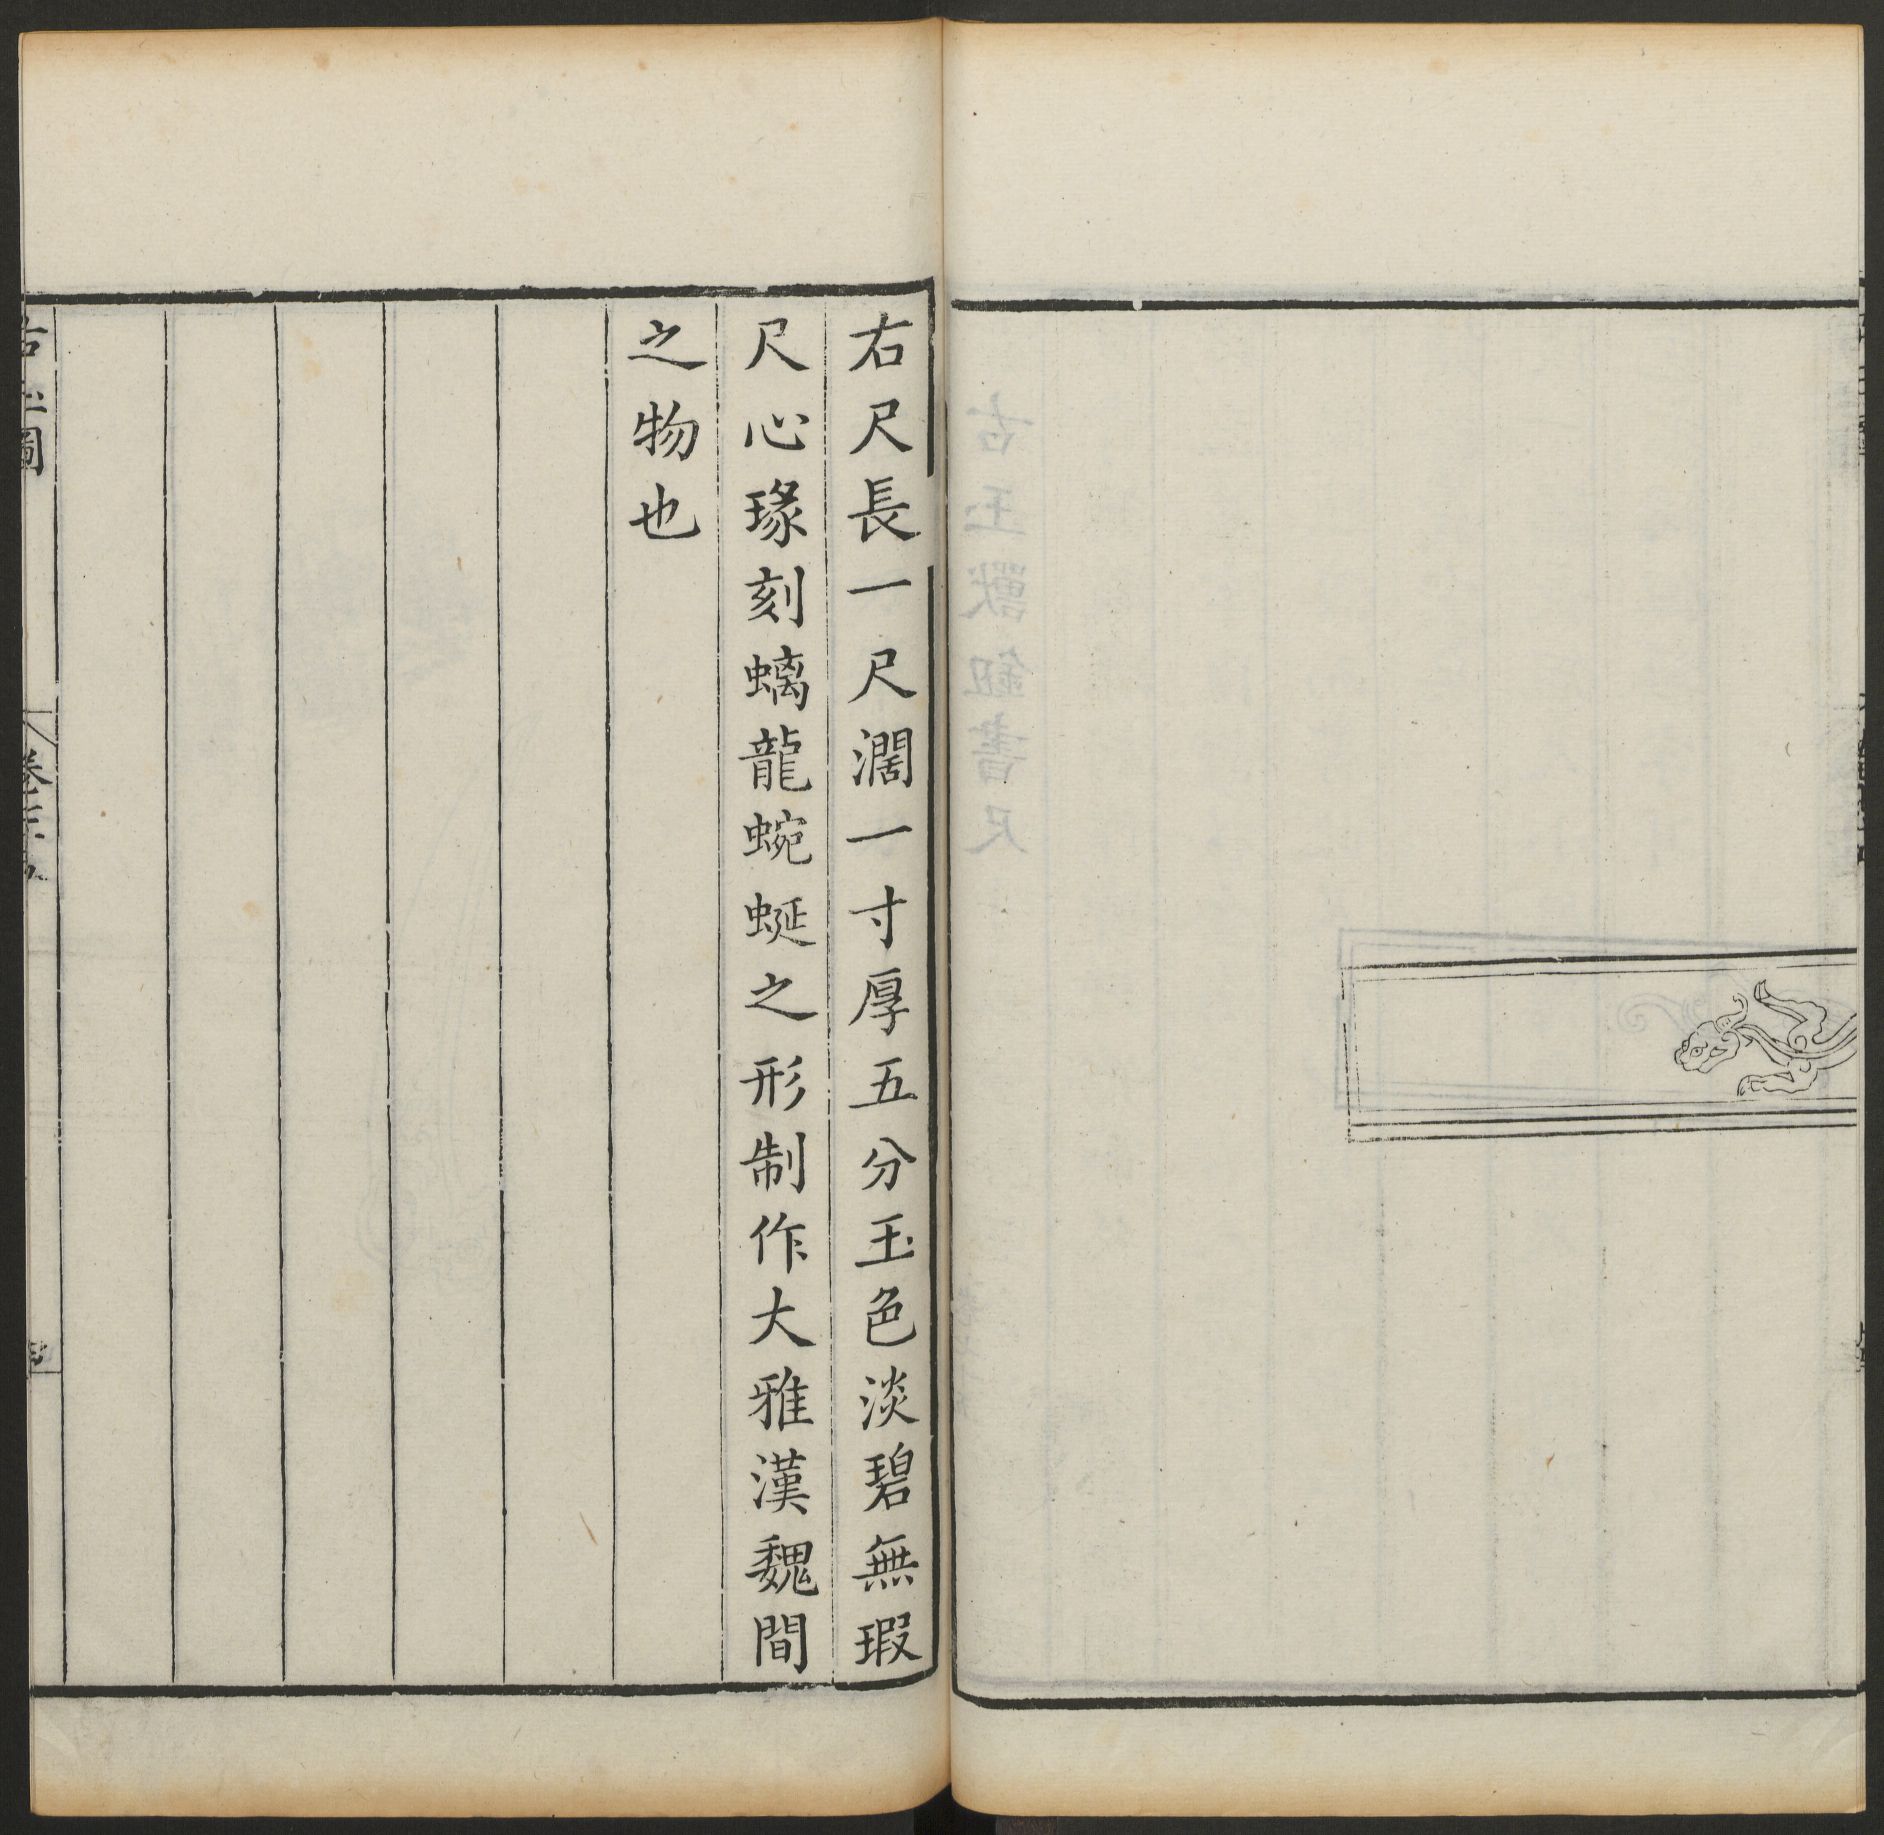 右尺長一尺濶一寸厚五分玉色淡碧無瑕
尺心瑑刻螭龍蜿蜒之形制作大雅漢魏間
之物也
古玉圖